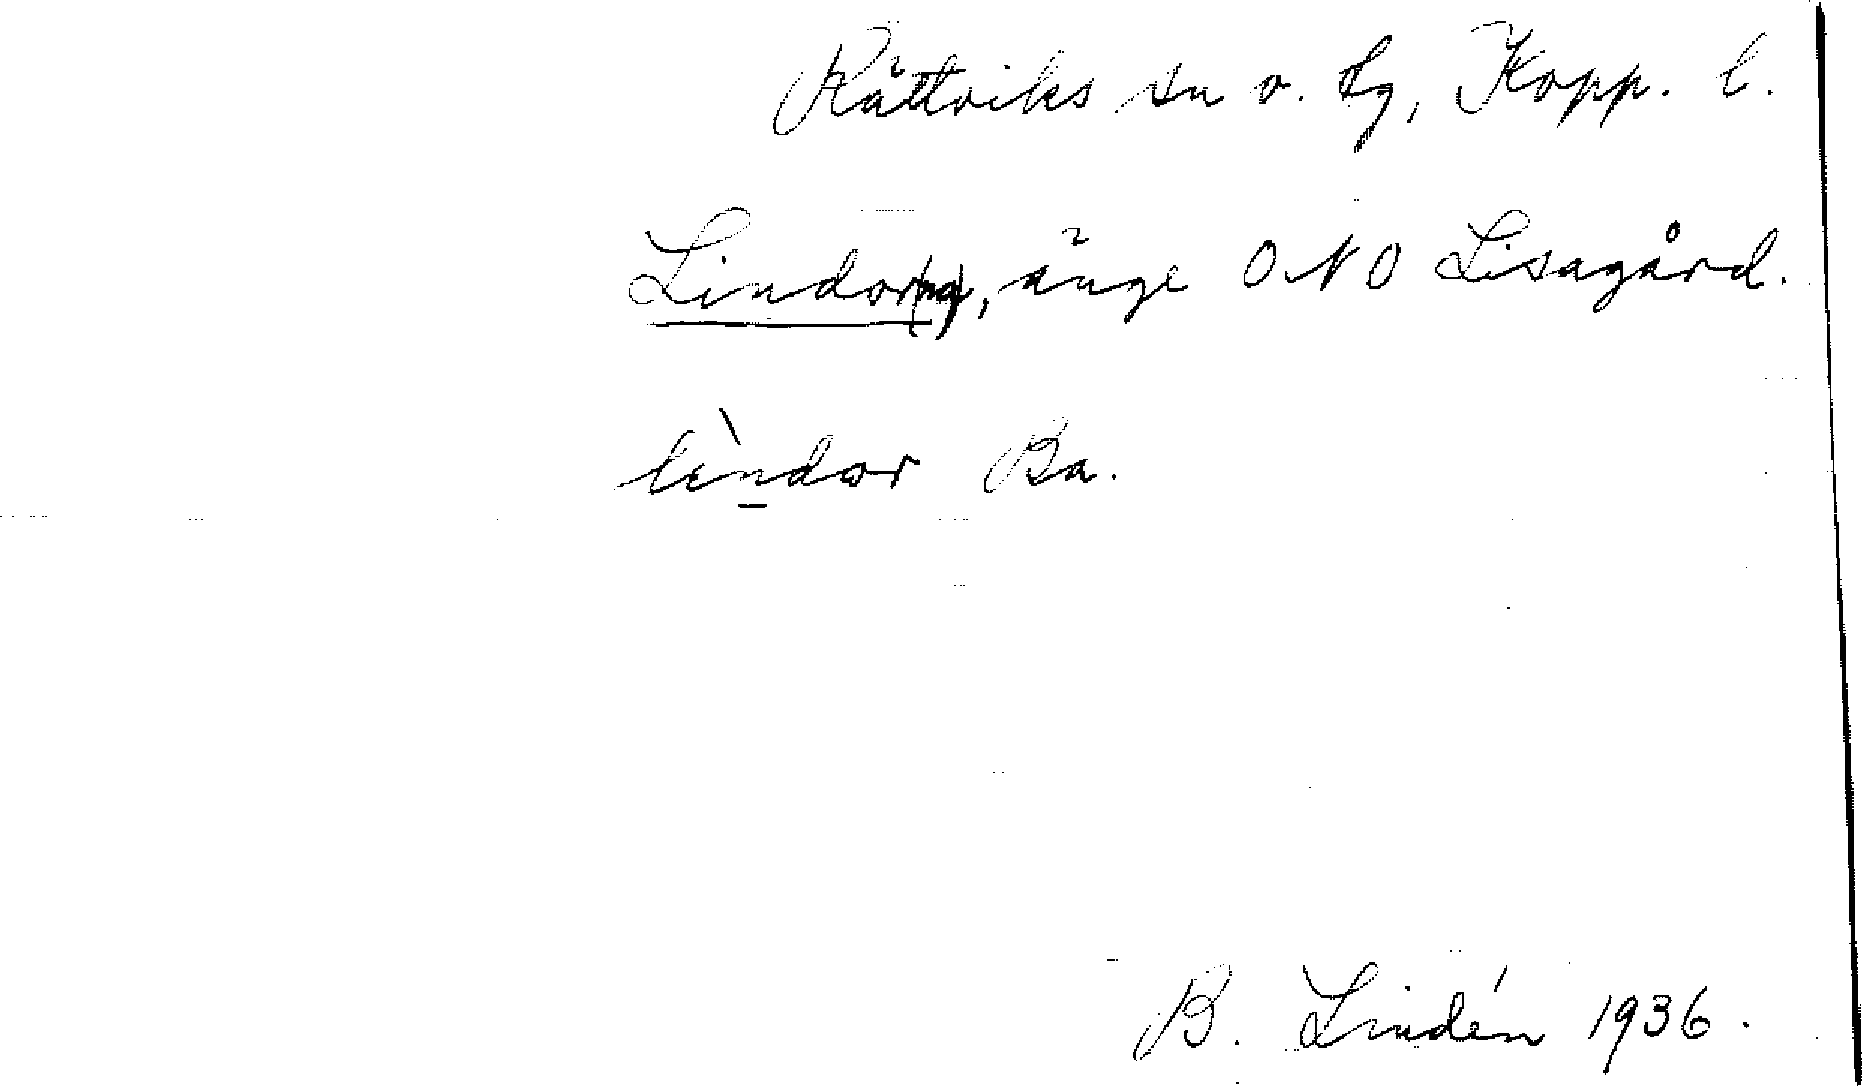 Rättviks sn o. tg, Kopp. l.
Lindor(na), änge ONO Lisagård.
lìndor Ba.
B. Lindén 1936.